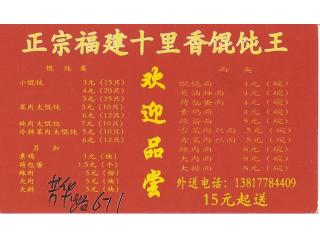 正宗福建十里香馄饨王
馄饨类
小馄饨 3元(15只)
4元(20只)
5元(25只)
菜肉大馄饨 5元(10只)
6元(12只)
辣肉大馄饨 7元(10只)
冷拌菜肉大馄饨 5元(10只)
6元(12只)
另加
素鸡 1元(块)
荷包蛋 1.5元(个)
辣肉 5元(份)
大肉 5元(块)
大排 5元(块)
欢迎品尝
面类
馄饨面 4元(碗)
葱油拌面 4元(碗)
荷包蛋面 4元(碗)
素鸡面 4元(碗)
5元(碗)
5元(碗)
辣肉面 8元(碗)
大肉面 8元(碗)
大排面 8元(碗)
外送电话:13817784409
15元起送
671